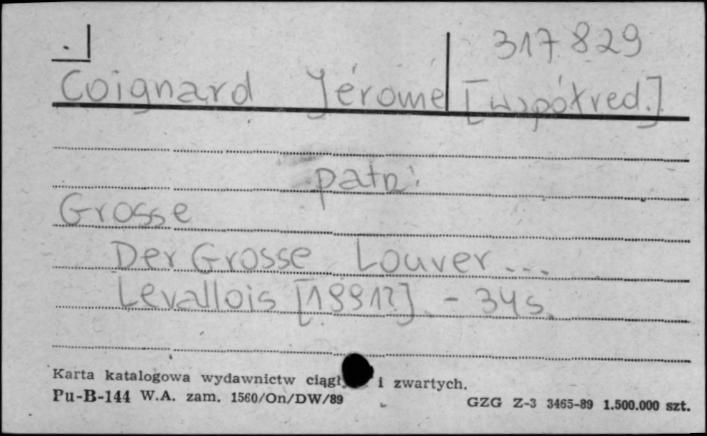 317829
Coignard Jérome [współred.]
patrz:
Grosse
Der Grosse Louver...
Levallois [1991?]. - 34 s.
Karta katalogowa wydawnictw ciągł i zwartych.
Pu-B-144 W.A. zam. 1560/On/DW/89 GZG Z-3 3465-89 1.500.000 szt.